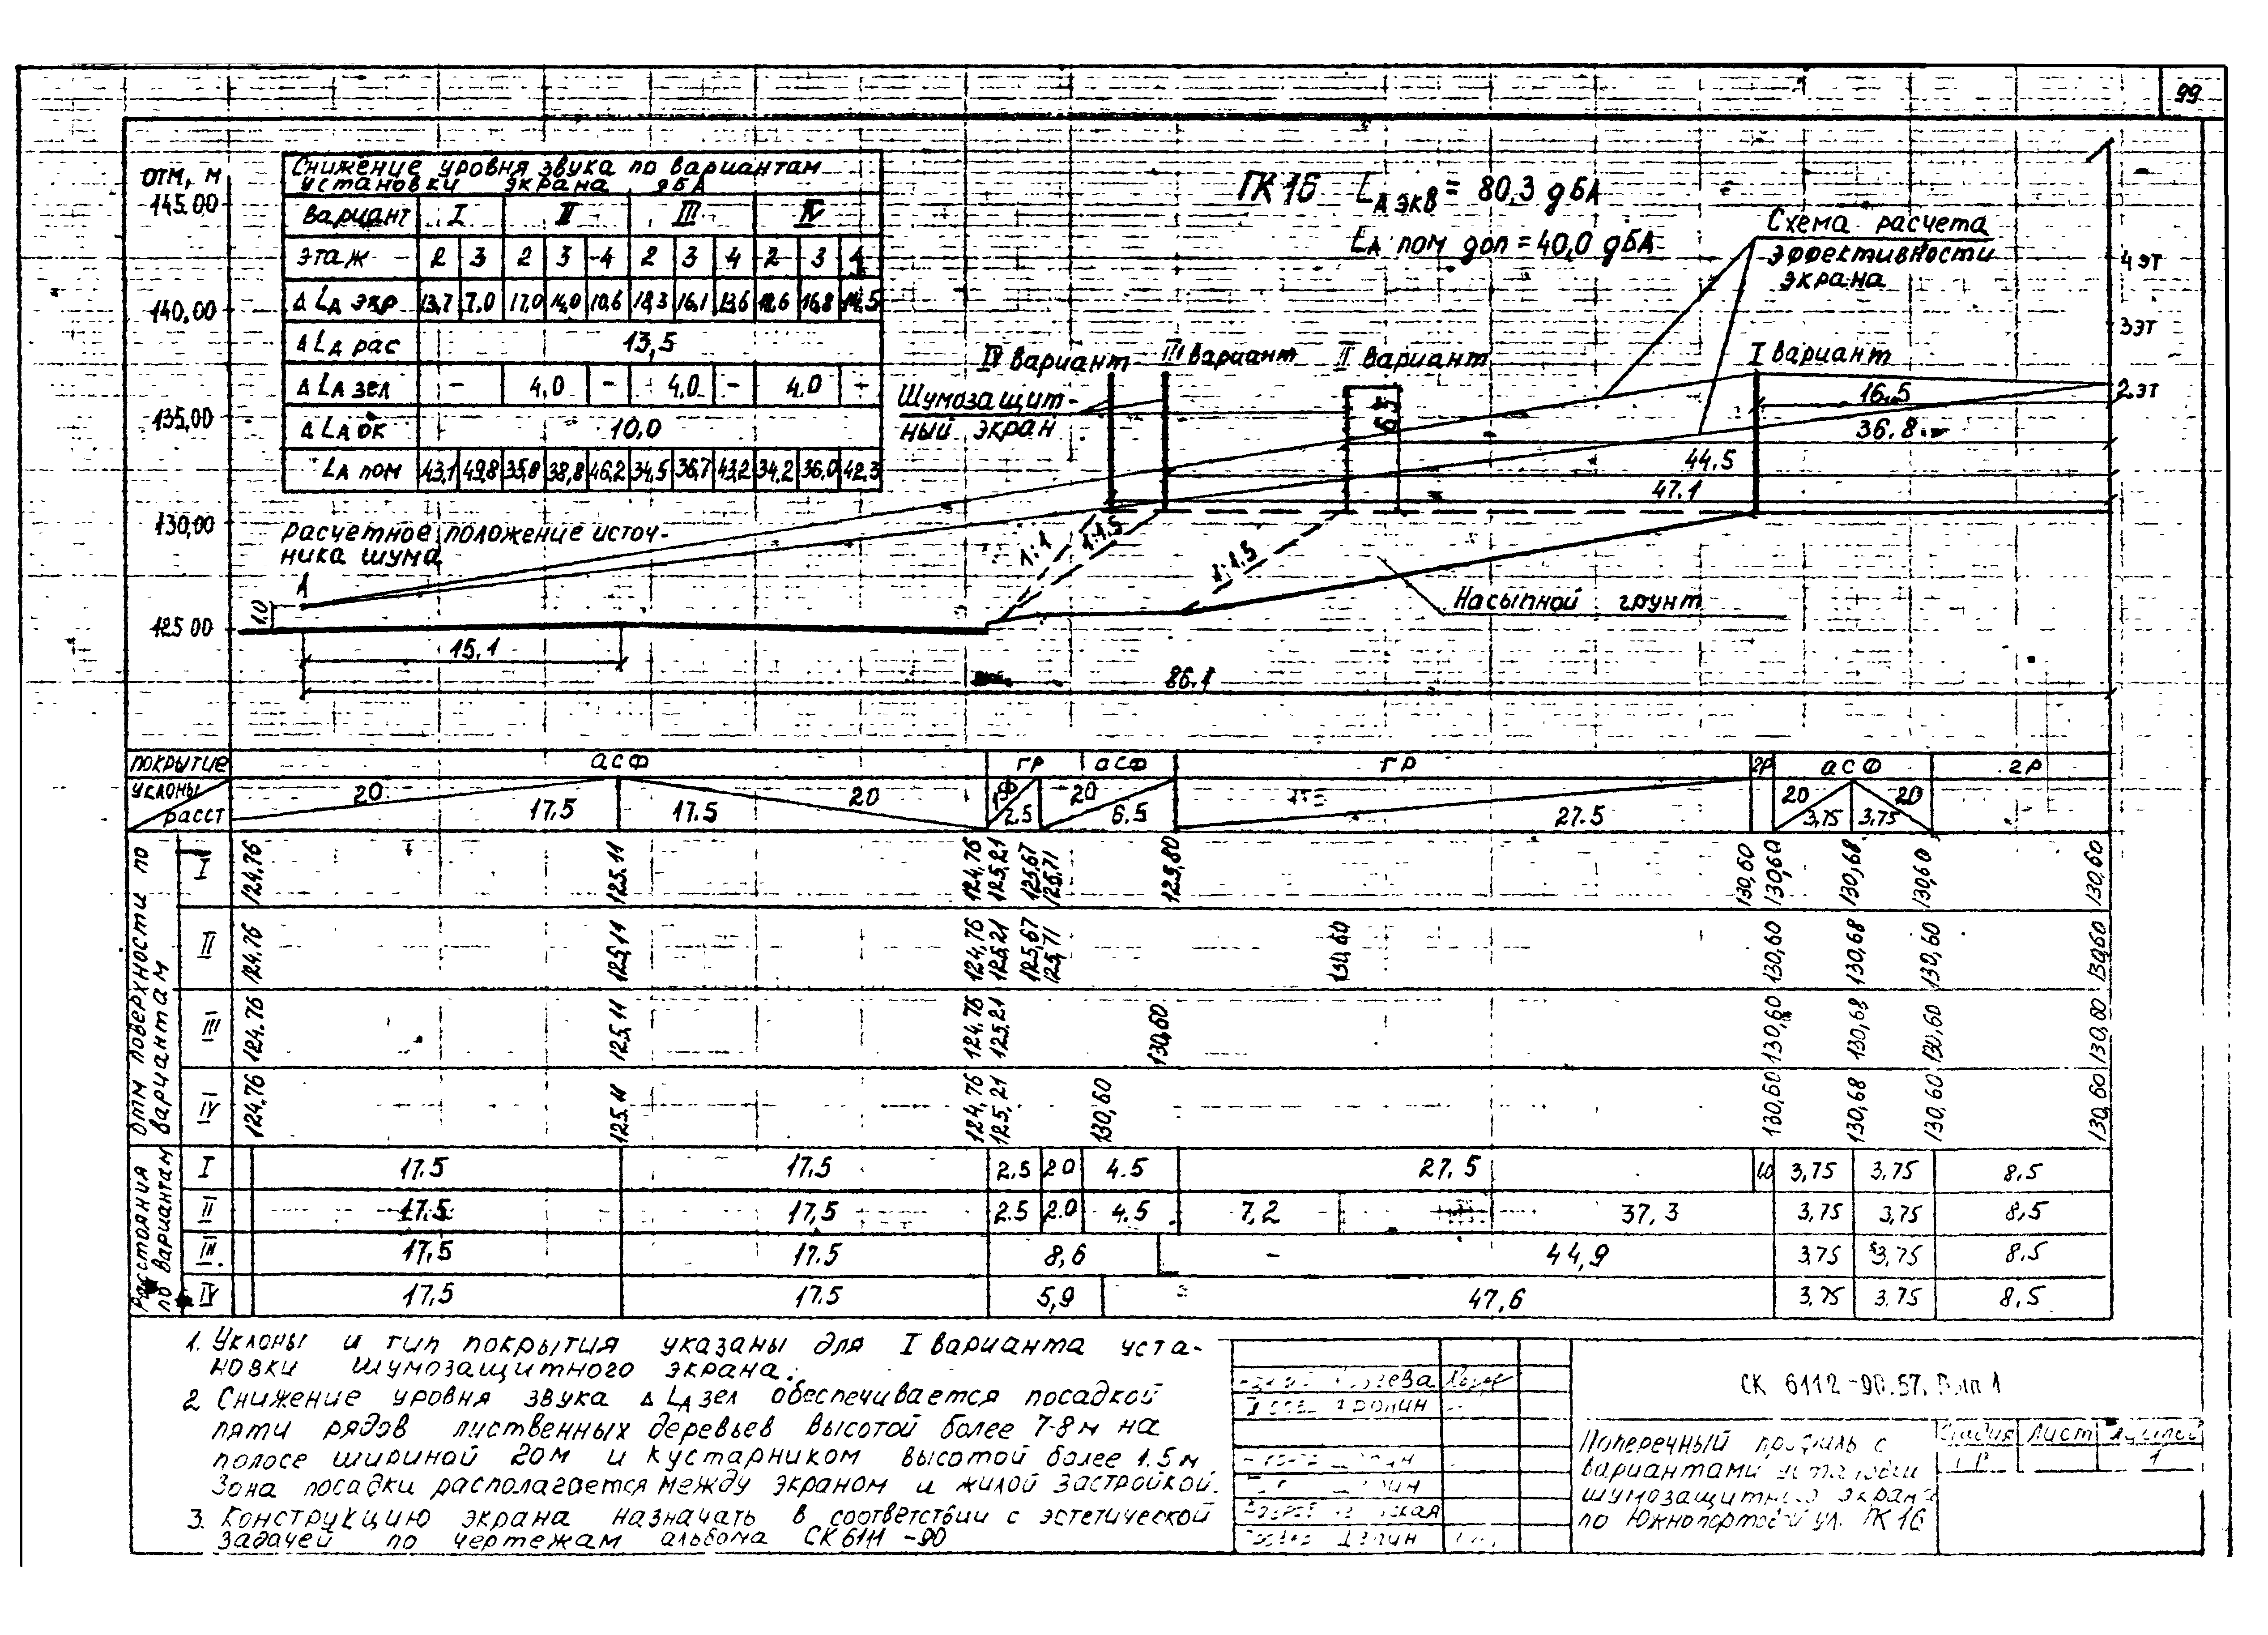 99
ОТМ, М
145.00
140,00
135,00
130,00
125 00
Снижение уровня звука по вариантам
установки экрана дБА
Вариант I II III IV
этаж 2 3 2 3 4 2 3 4 2 3 4
Δ LА экр 13,7 7,0 17,0 14,0 10,6 18,3 16,1 13,6 18,6 16,8 14,5
Δ LА рас 13,5
Δ LА зел - 4,0 - 4,0 - 4,0 -
Δ LА ок 10,0
LА пом 43,1 49,8 35,8 38,8 46,2 34,5 36,7 43,2 34,2 36,0 42,3
ПК 16 LА экв = 80,3 дБА
LА пом доп = 40,0 дБА
Схема расчета
эффективности
экрана
4 эт
3 эт
2 эт
IV вариант III вариант II вариант I вариант
Шумозащит-
ный экран
16.5
36.8
44.5
47.1
Расчетное положение источ-
ника шума
А
1.0
1:1
1:1.5
1:1.5
Насыпной грунт
15,1
86.1
покрытие асф гр асф гр гр асф гр
уклоны 20 20 20 20 20
расст 17.5 17.5 2.5 6.5 27.5 3,75 3,75
Отм поверхности по
вариантам
I 124.76 125.11 124,76 125,21 125,67 125,71 125,80 130,60 130,60 130,68 130,60 130,60
II 124.76 125,11 124,76 125,21 125,67 125,71 130,60 130,60 130,68 130,60 130,60
III 124.76 125,11 124.76 125.21 130,60 130,60 130,68 130,60 130,60
IV 124,76 125.11 124,76 125,21 130,60 130,60 130,68 130,60 130,60
Расстояния
по вариантам
I 17.5 17.5 2.5 2.0 4.5 27.5 1.0 3,75 3,75 8,5
II 17.5 17,5 2.5 2.0 4.5 7,2 37,3 3,75 3,75 8,5
III 17,5 17.5 8,6 - 44,9 3,75 3,75 8,5
IV 17,5 17.5 5,9 47,6 3,75 3.75 8,5
1. Уклоны и тип покрытия указаны для I варианта уста-
новки шумозащитного экрана.
2 Снижение уровня звука Δ LА зел обеспечивается посадкой
пяти рядов лиственных деревьев высотой более 7-8 м на
полосе шириной 20м и кустарником высотой более 1.5 м
Зона посадки располагается между экраном и жилой застройкой.
3. Конструкцию экрана назначать в соответствии с эстетической
задачей по чертежам альбома СК 6111 -90
СК 6112 -90.57. Вып 1
Поперечный профиль с
вариантами установки
шумозащитного экрана
по Южнопортовой ул. ПК 16
Стадия Лист Листов
1